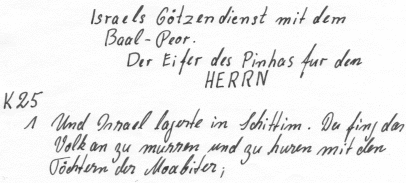 Israels Götzendienst mit dem
Baal-Peor.
Der Eifer des Pinhas fur den
HERRN
K25
1 Und Israel lagerte in Schittim. Da fing das
Volk an zu murren und zu huren mit den
Töchtern der Moabiter;